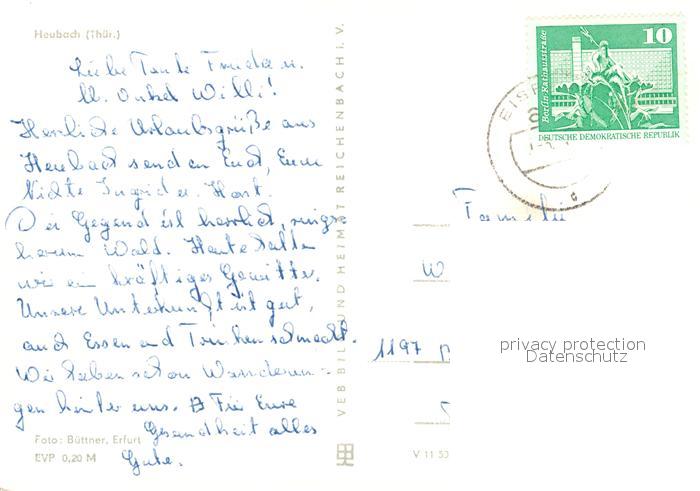 Heubach (Thür.)
Liebe Tante Frieda u.
ll. Onkel Willi!
Herzliche Urlaubsgrüße aus
Heubach senden Euch, Eure
Nichte Ingrid u. Horst.
Die Gegend ist herrlich, rings
herum Wald. Heute hatten
wir ein kräftiges Gewitter.
Unsere Unterkunft ist gut,
auch Essen und Trinken schmeckt.
Wir haben schon Wanderun-
gen hinter uns. Für Eure
Gesundheit alles
Gute.
Foto: Büttner, Erfurt
EVP 0,20 M
VEB BILD UND HEIMAT REICHENBACH I. V.
V 11 50
Berlin-Rathausstraße
10
DEUTSCHE DEMOKRATISCHE REPUBLIK
EIS
Familie
W
1197
privacy protection
Datenschutz